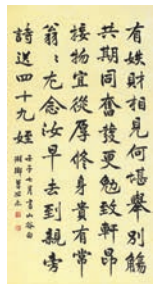 有財相見何堪舉別觴
共期同奮發更勉致軒昂
接物宜從厚修身貴有常
翁〻尤念汝早去到親旁
詩送四十九姪
七月書山谷
湘鄉曾